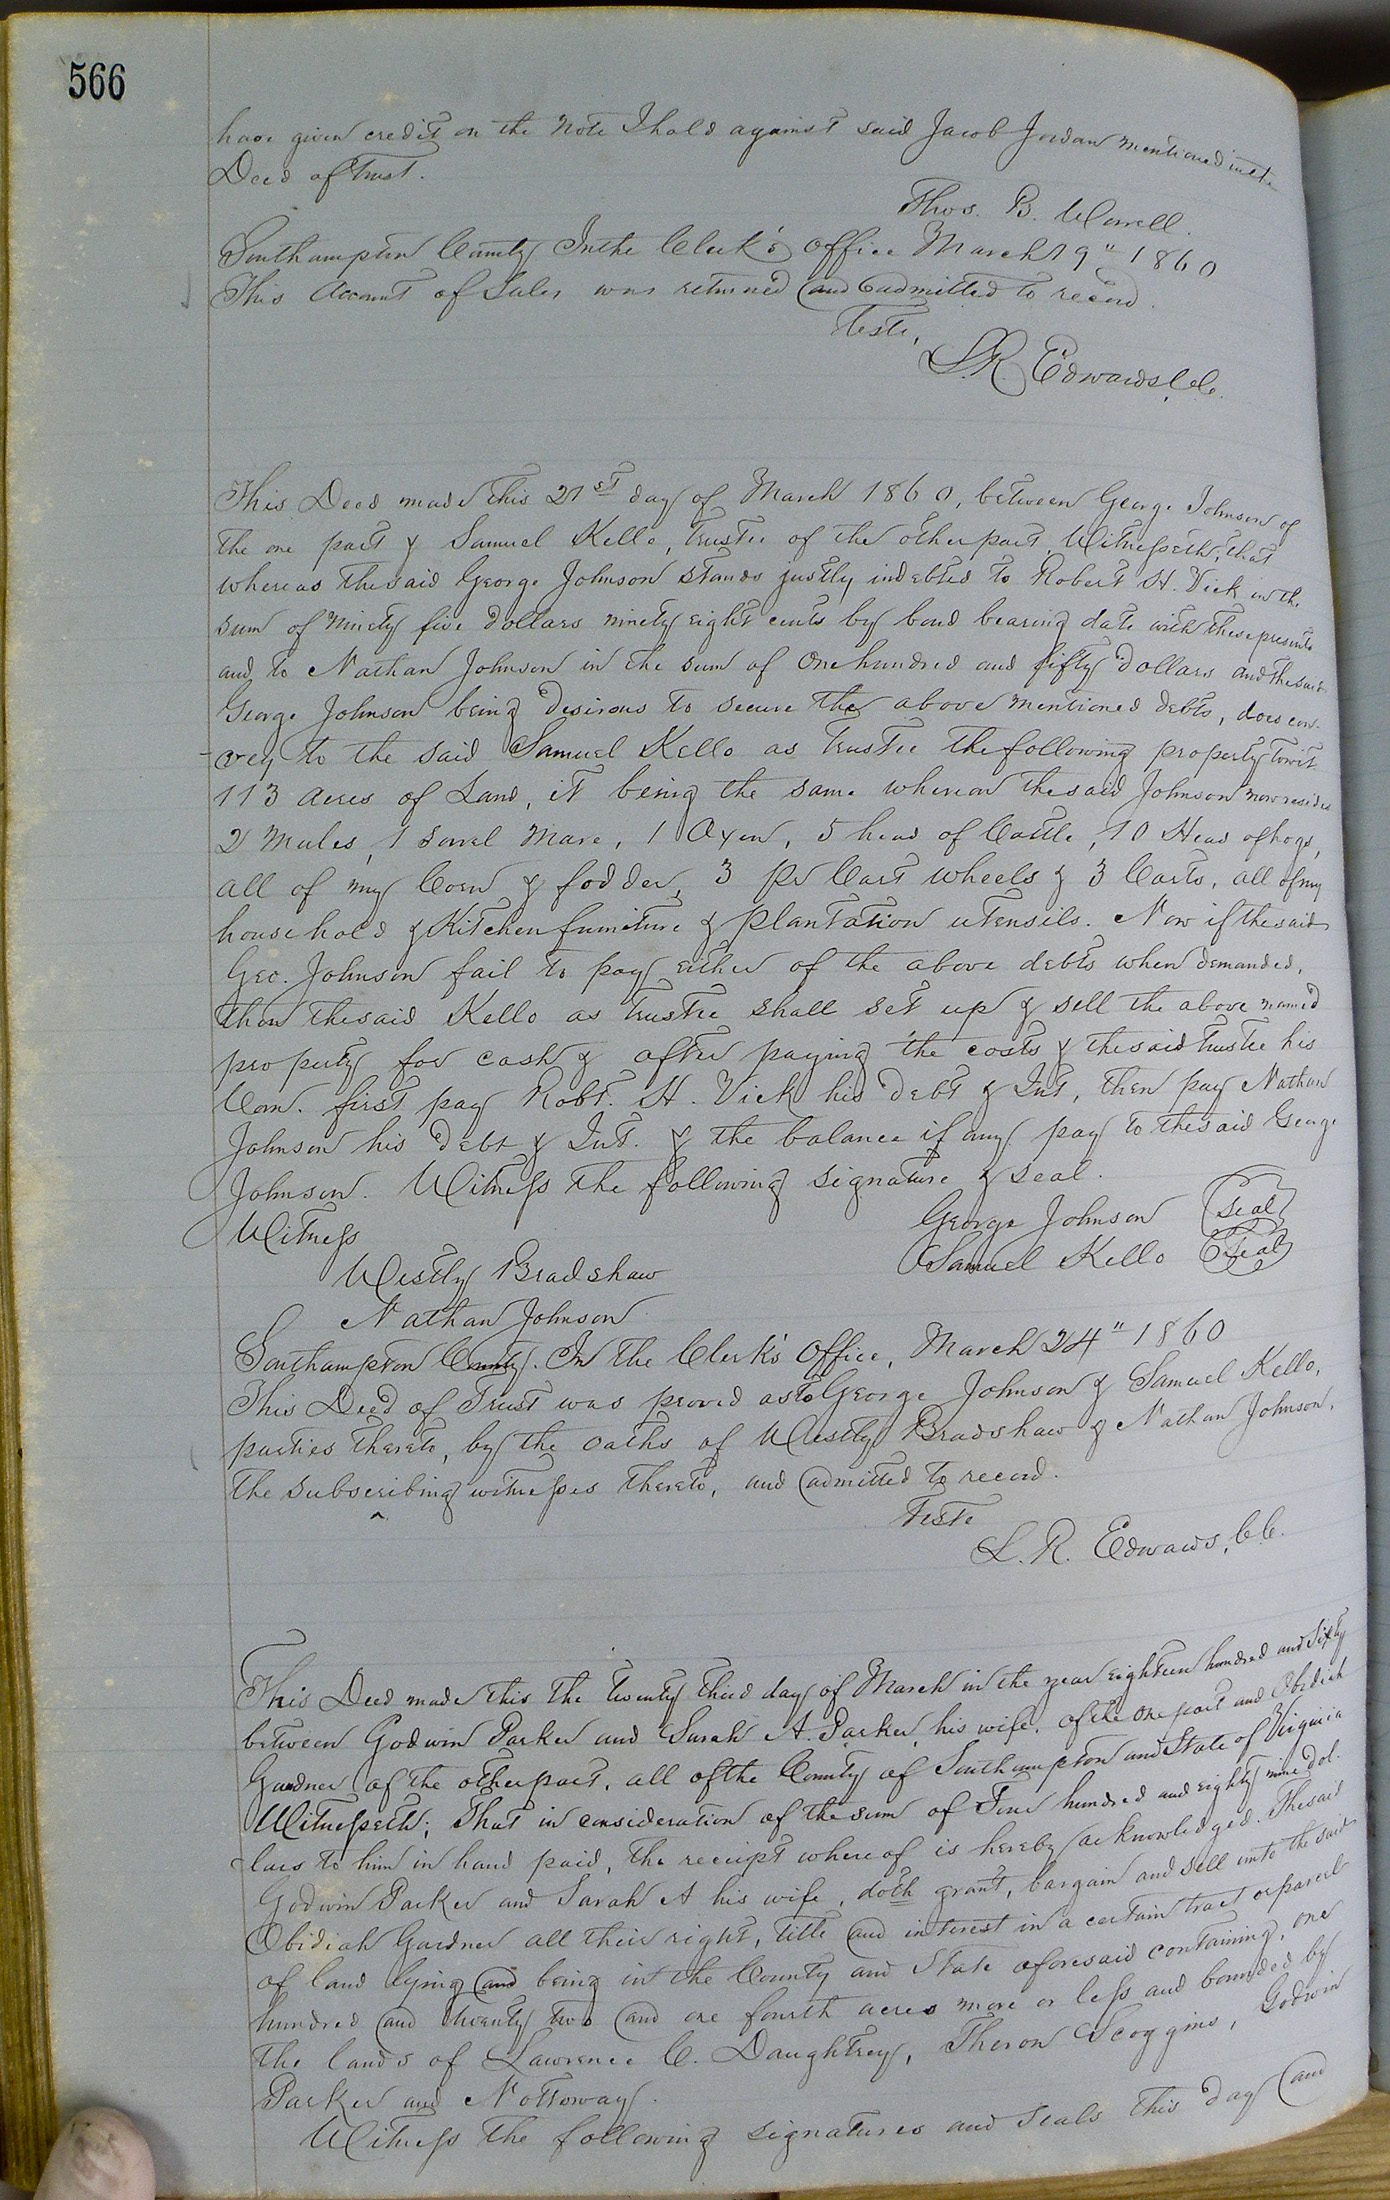 566
have given credit on the note I hold against said Jacob Jordan mentioned in the
Deed of Trust.
Thos. B. Worrell.
Southampton County, In the Clerk's office March 19" 1860
This Account of Sales was returned and admitted to record.
Teste,
L. R. Edwards, C.C.
This Deed made this 21st day of March 1860, between George Johnson of
the one part & Samuel Kello, trustee of the other part, Witnesseth, that
whereas the said George Johnson stands justly indebted to Robert H. Vick in the
sum of ninety five dollars ninety eight cents by bond bearing date with these presents
and to Nathan Johnson in the sum of one hundred and fifty dollars and the said
George Johnson being desirous to secure the above mentioned debts, does con-
-vey to the said Samuel Kello as trustee the following property towit
113 acres of Land, it being the same whereon the said Johnson now resides
2 Mules, 1 sorrel Mare, 1 Oxen, 5 head of Cattle, 10 Head of hogs,
all of my Corn & fodder, 3 Pr Cart wheels & 3 Carts, all of my
household & Kitchen furniture & plantation utensils. Now if the said
Geo. Johnson fail to pay either of the above debts when demanded,
then the said Kello as trustee shall set up & sell the above named
property for cash & after paying the costs & the said trustee his
Com. first pay Robt. H. Vick his debt & Int, then pay Nathan
Johnson his debt & Int. & the balance if any pay to the said George
Johnson. Witness the following signature & seal.
Witness George Johnson Seal
Westly Bradshaw Samuel Kello Seal
Nathan Johnson
Southampton County. In the Clerk's Office, March 24" 1860
This Deed of Trust was proved as to George Johnson & Samuel Kello,
parties thereto, by the oaths of Westly Bradshaw & Nathan Johnson,
the subscribing witnesses thereto, and admitted to record.
Teste
L. R. Edwards, C.C.
This Deed made this the twenty third day of March in the year eighteen hundred and sixty
between Godwin Parker and Sarah A. Parker, his wife, of the one part and Obidiah
Gardner of the other part, all of the County of Southampton and State of Virginia
Witnesseth; That in consideration of the sum of Four hundred and eighty nine dol-
-lars to him in hand paid, the receipt whereof is hereby acknowledged. The said
Godwin Parker and Sarah A his wife, doth grant, bargain and sell unto the said
Obidiah Gardner all their right, title and interest in a certain tract or parcel
of land lying and being in the County and State aforesaid containing, one
hundred and twenty two and one fourth acres more or less and bounded by
the lands of Lawrence C. Daughtrey, Theron Scoggins, Godwin
Parker and Nottoway.
Witness the following signatures and seals this day and